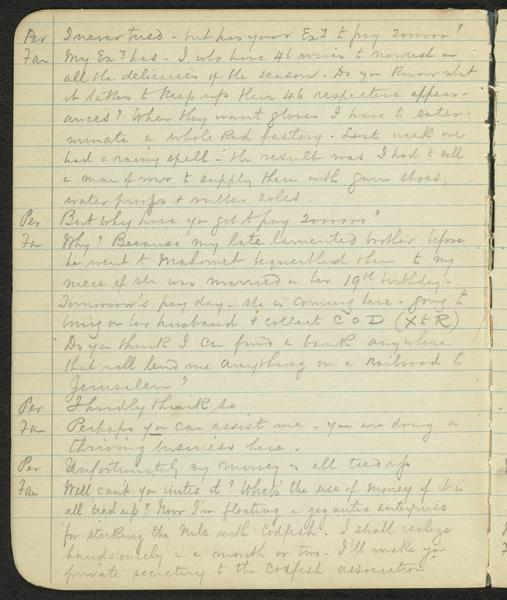 Per I never tried - but has your Exy to pay 2000000?
Fan My Exy has. I who have 46 wives to nourish on
all the delicacies of the season. Do you know what
it takes to keep up their 46 respective appear-
ances? When they want gloves I have to exter-
minate a whole Kid factory. Last week we
had a rainy spell - the result was I had to sell
a man of war to supply them with gum shoes,
water proofs & rubber soles.
Per But why have you got to pay 2000000?
Fan Why? Because my late lamented brother before
he went to Mahomet bequeathed them to my
niece if she was married on her 19th birthday.
Tomorrow's pay day - she is coming here - going to
bring on her husband & collect C O D (X to R)
Do you think I can find a bank anywhere
that will lend me anything on a railroad to
Jerusalem?
Per I hardly think so
Fan Perhaps you can assist me - you are doing a
thriving business here.
Per Unfortunately my money is all tied up
Fan Well can't you untie it? What's the use of money if it is
all tied up? Now I'm floating a gigantic enterprise
for stocking the Nile with Codfish. I shall realize
handsomely in a month or two. I'll make you
private secretary to the Codfish association